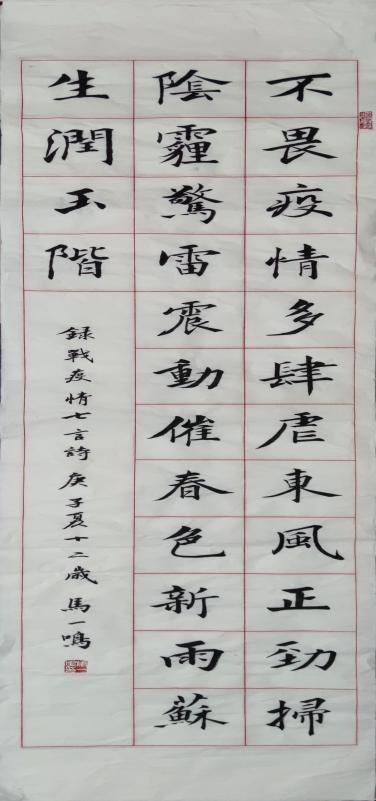 不畏疫情多肆虐東風正勁掃
陰霾驚雷震動催春色新雨蘇
生潤玉階
録戰疫情七言詩 庚子夏十二歲 馬一鳴